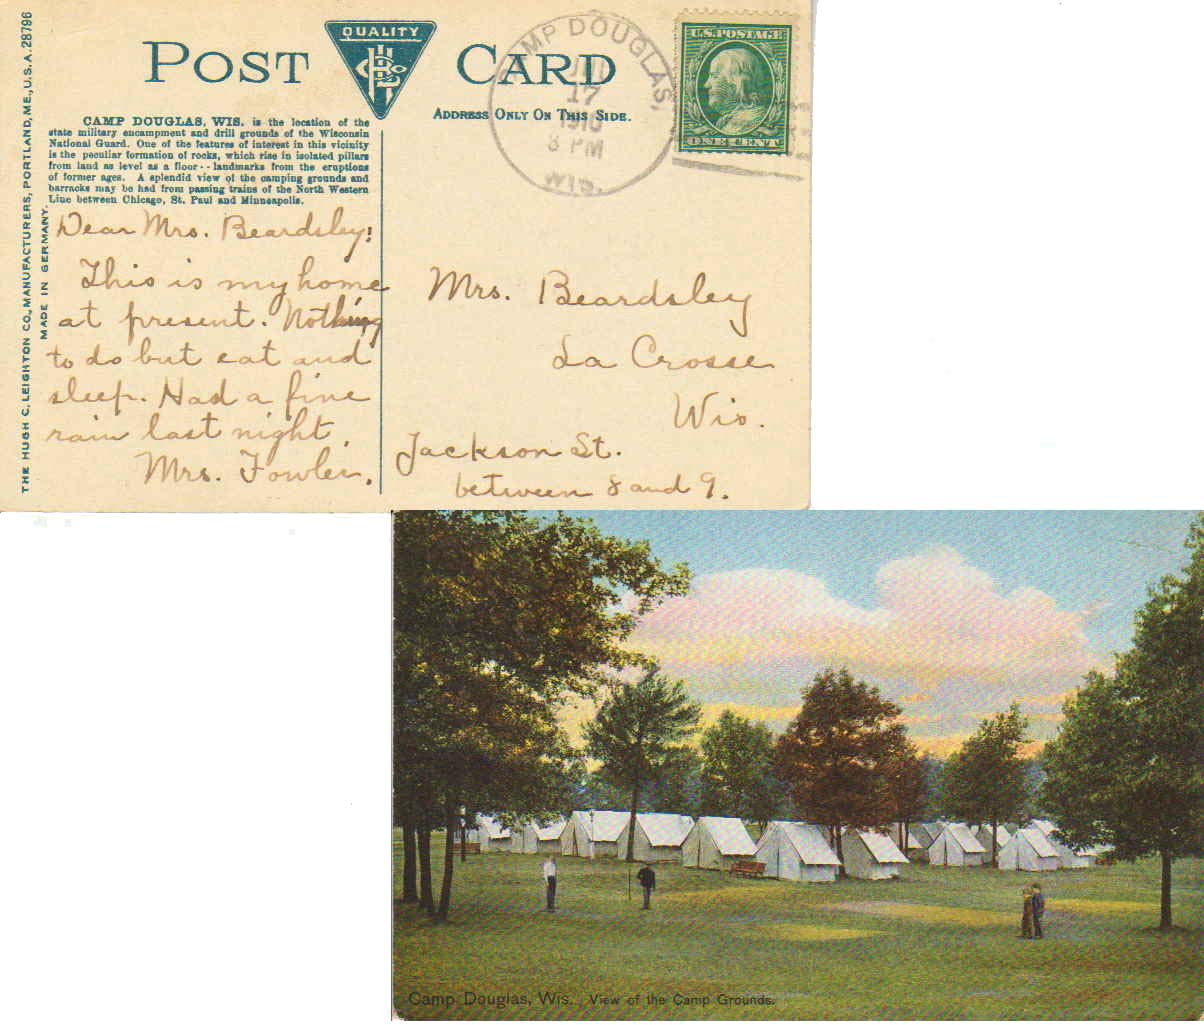 THE HUGH C. LEIGHTON CO., MANUFACTURERS, PORTLAND, ME., U.S.A. 28796
MADE IN GERMANY.
POST CARD
QUALITY
ADDRESS ONLY ON THIS SIDE.
CAMP DOUGLAS, WIS. is the location of the
state military encampment and drill grounds of the Wisconsin
National Guard. One of the features of interest in this vicinity
is the peculiar formation of rocks, which rise in isolated pillars
from land as level as a floor--landmarks from the eruptions
of former ages. A splendid view of the camping grounds and
barracks may be had from passing trains of the North Western
Line between Chicago, St. Paul and Minneapolis.
CAMP DOUGLAS,
JUL
17
1910
8 PM
WIS.
U.S. POSTAGE
ONE CENT
Dear Mrs. Beardsley:
This is my home
at present. Nothing
to do but eat and
sleep. Had a fine
rain last night.
Mrs. Fowler.
Mrs. Beardsley
La Crosse
Wis.
Jackson St.
between 8 and 9.
Camp Douglas, Wis., View of the Camp Grounds.